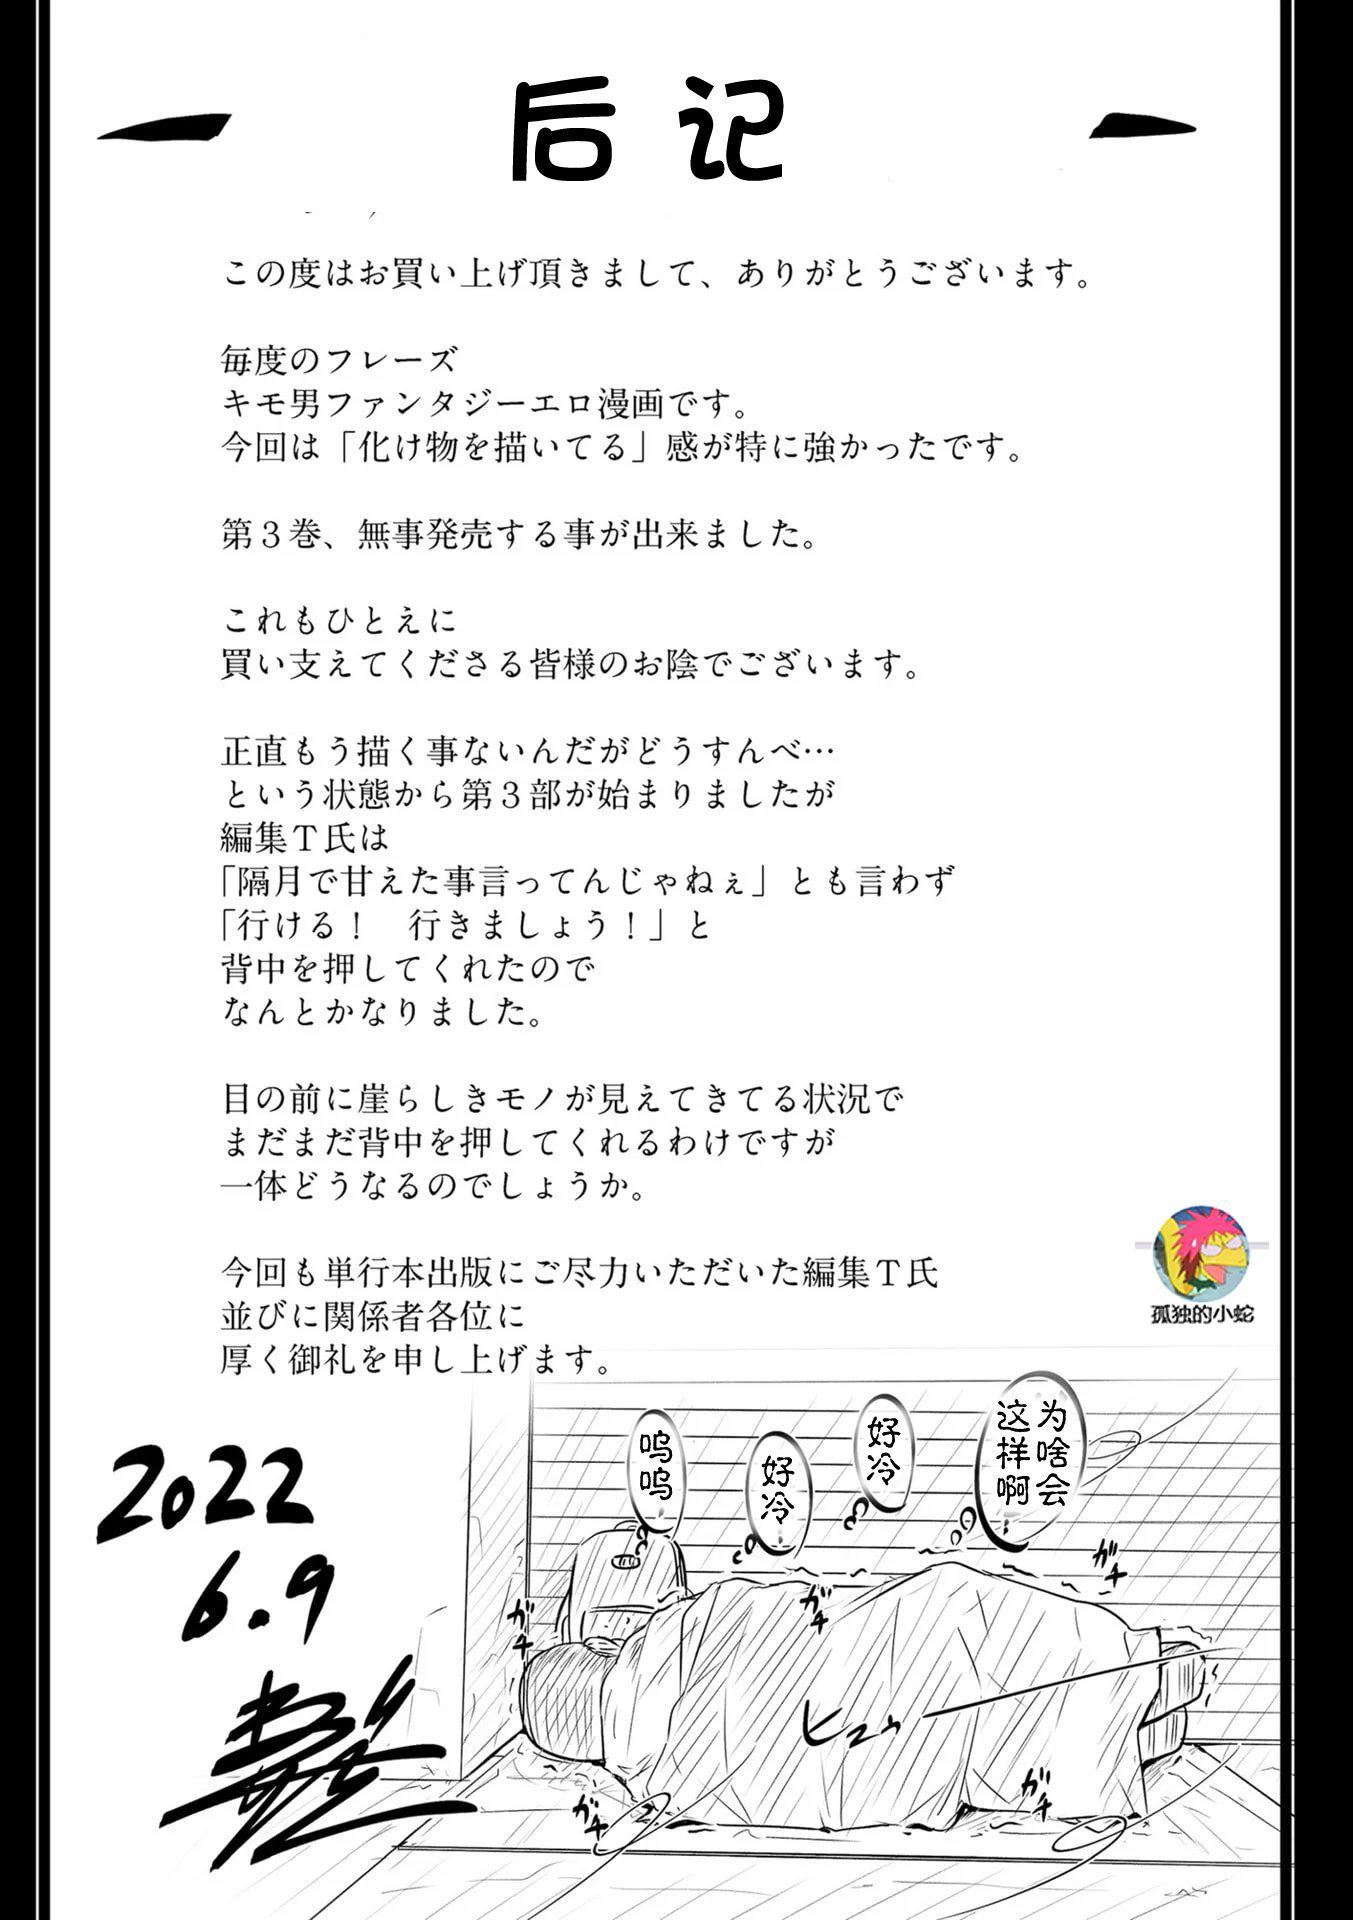 后记
この度はお買い上げ頂きまして、ありがとうございます。
毎度のフレーズ
キモ男ファンタジーエロ漫画です。
今回は「化け物を描いてる」感が特に強かったです。
第３巻、無事発売する事が出来ました。
これもひとえに
買い支えてくださる皆様のお陰でございます。
正直もう描く事ないんだがどうすんべ…
という状態から第３部が始まりましたが
編集Ｔ氏は
「隔月で甘えた事言ってんじゃねぇ」とも言わず
「行ける！　行きましょう！」と
背中を押してくれたので
なんとかなりました。
目の前に崖らしきモノが見えてきてる状況で
まだまだ背中を押してくれるわけですが
一体どうなるのでしょうか。
今回も単行本出版にご尽力いただいた編集Ｔ氏
並びに関係者各位に
厚く御礼を申し上げます。
孤独的小蛇
为啥会
这样啊
好冷
好冷
呜呜
ガチ
ガチ
ガチ
ヒュウ
ガチ
ガチ
2022
6.9